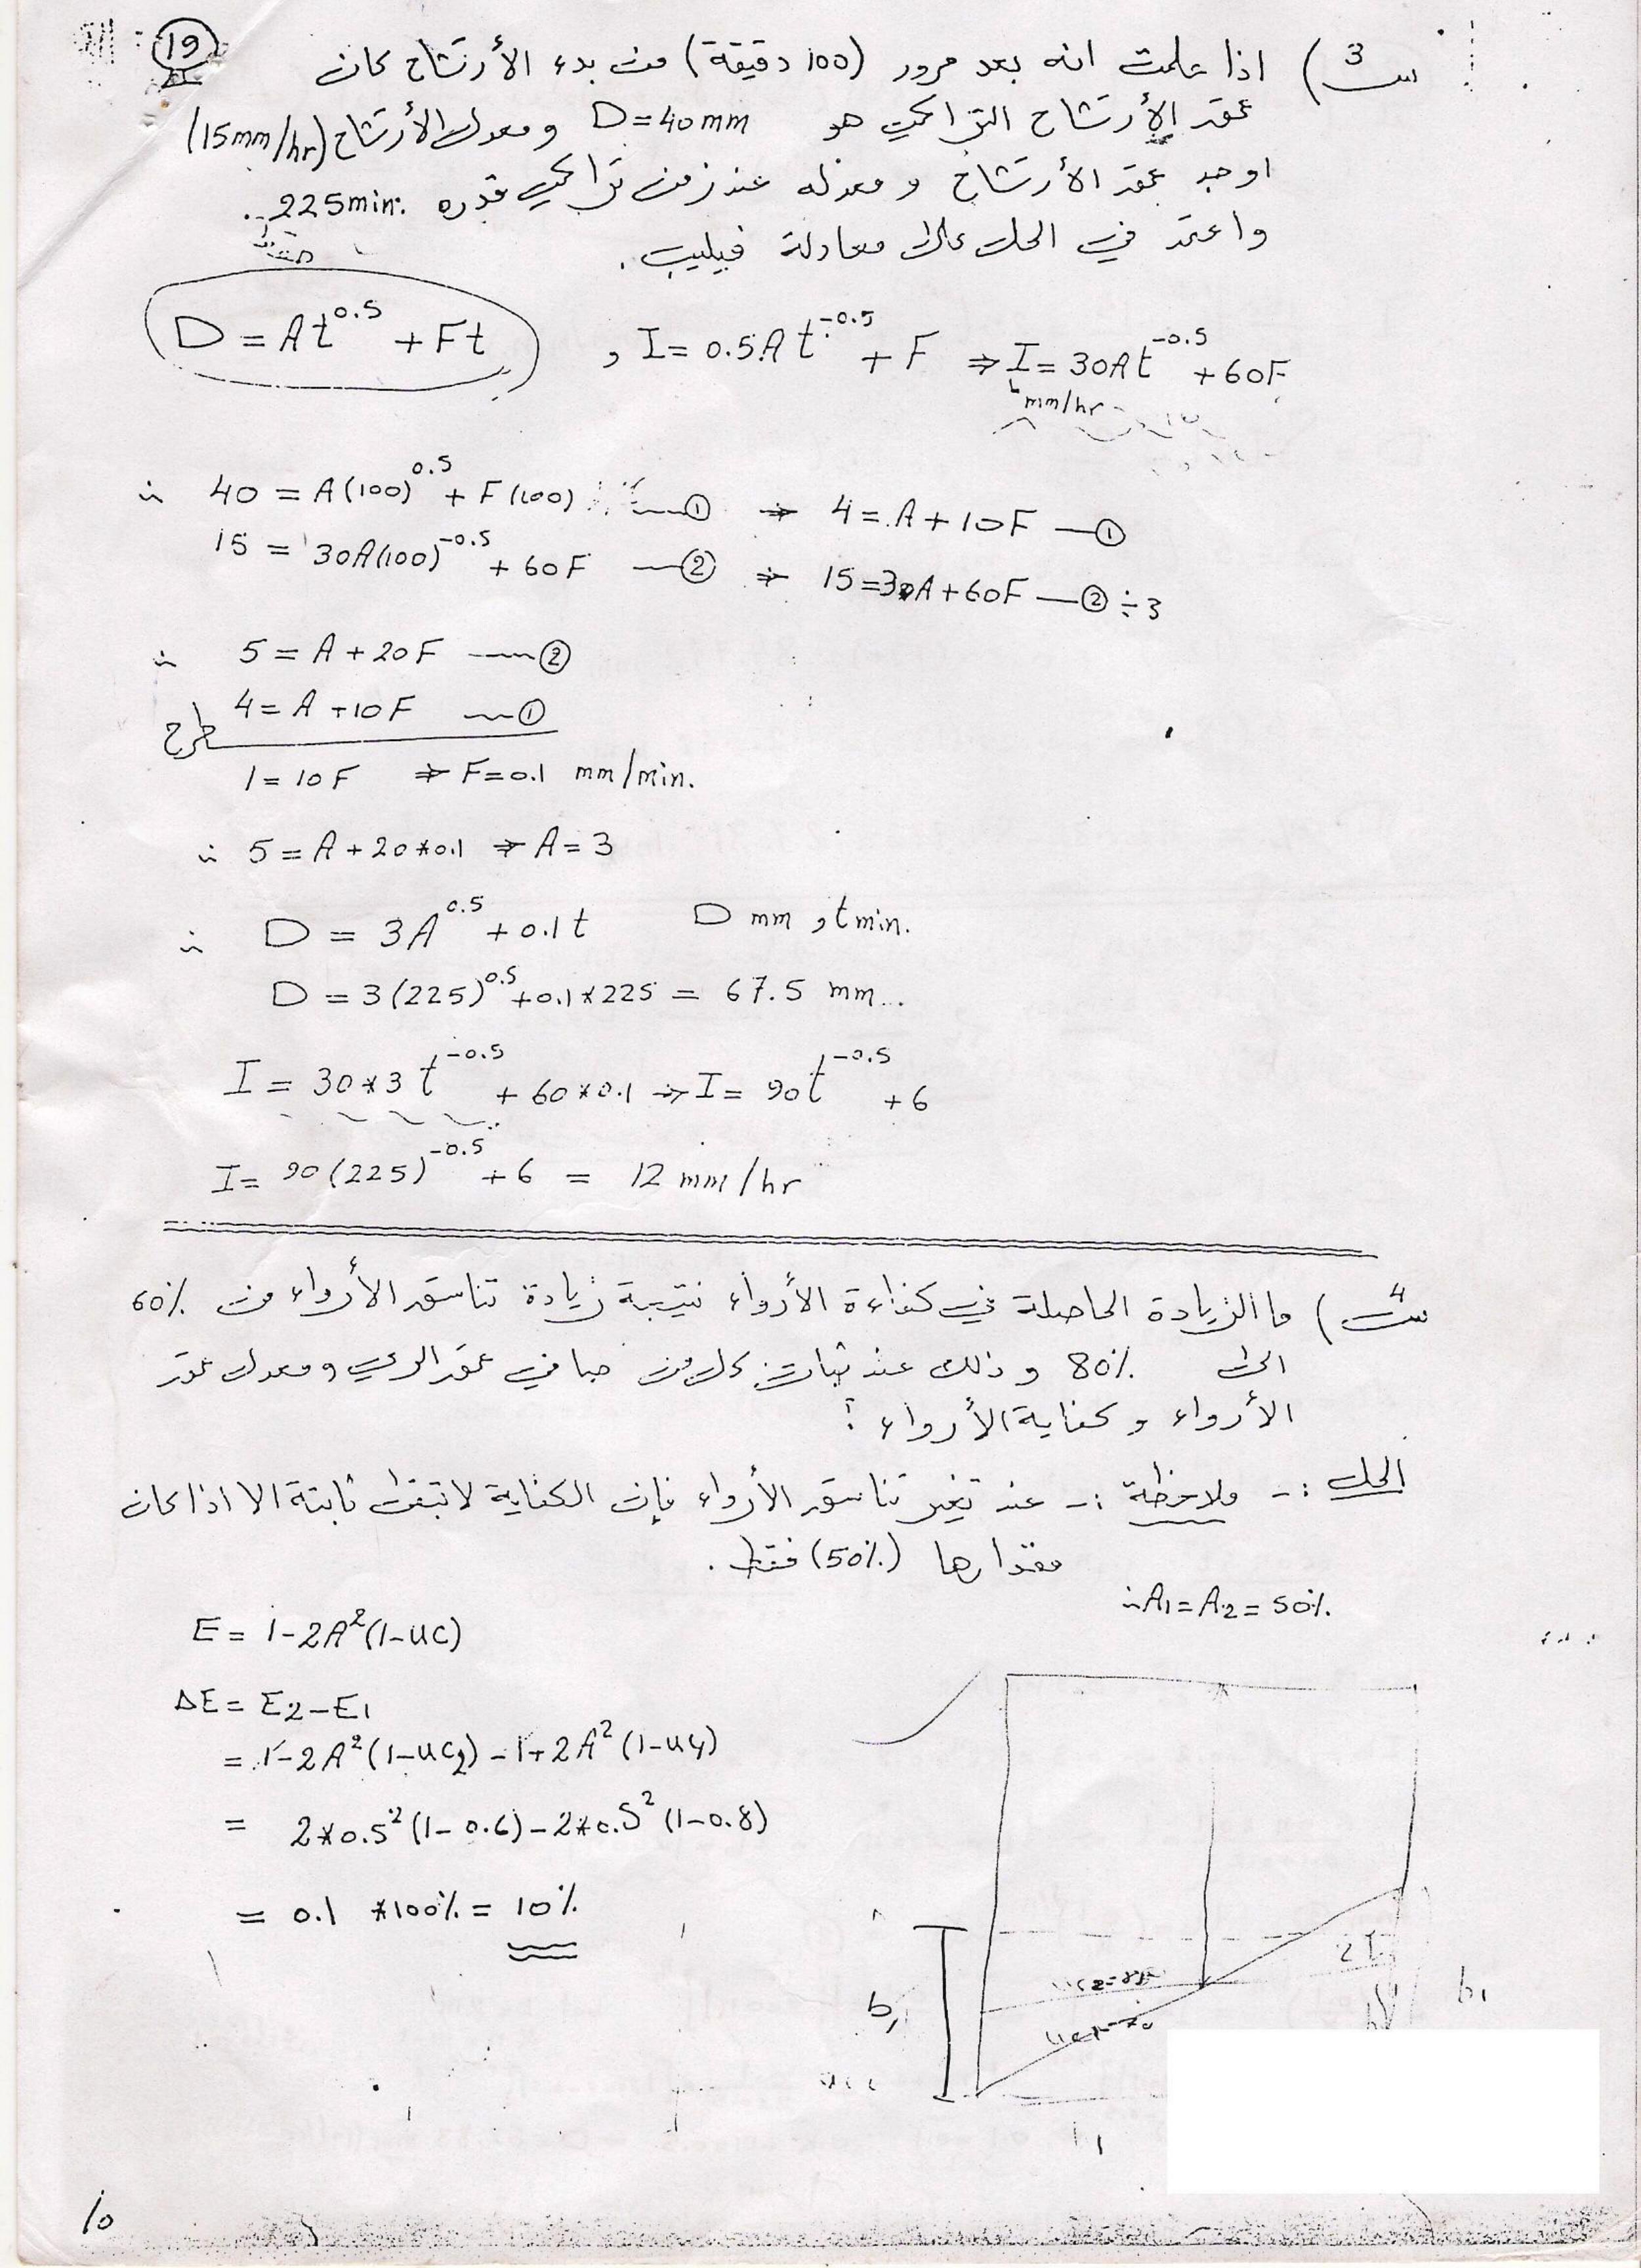 19
س3) اذا علمت انه بعد مرور (100 دقيقة) من بدء الأرتشاح كان
عمق الأرتشاح التراكمي هو D=40mm ومعدل الأرتشاح (15mm/hr)
اوجد عمق الأرتشاح ومعدله عند زمن تراكمي قدره 225min.
واعتمد في الحل على معادلة فيليب.
D = At^0.5 + Ft , I = 0.5At^-0.5 + F ⇒ I = 30At^-0.5 + 60F
mm/hr
∴ 40 = A(100)^0.5 + F(100) —① ⇒ 4 = A + 10F —①
15 = 30A(100)^-0.5 + 60F —② ⇒ 15 = 3A + 60F —② ÷3
∴ 5 = A + 20F —②
4 = A + 10F —①
طرح
1 = 10F ⇒ F = 0.1 mm/min.
∴ 5 = A + 20*0.1 ⇒ A = 3
∴ D = 3A^0.5 + 0.1t D mm , t min.
D = 3(225)^0.5 + 0.1*225 = 67.5 mm..
I = 30*3t^-0.5 + 60*0.1 ⇒ I = 90t^-0.5 + 6
I = 90(225)^-0.5 + 6 = 12 mm/hr
س4) ما الزيادة الحاصلة في كفاءة الأرواء نتيجة زيادة تناسق الأرواء من 60%
الى 80% وذلك عند ثبات كل من صافي عمق الري ومعدل عمق
الأرواء وكفاية الأرواء ؟
الحل :- ملاحظة :- عند تغير تناسق الأرواء فإن الكفاية لا تبقى ثابتة الا اذا كان
مقدارها (50%) فقط.
∴ A1 = A2 = 50%
E = 1-2A^2(1-UC)
ΔE = E2-E1
= 1-2A^2(1-UC2) - 1+2A^2(1-UC1)
= 2*0.5^2(1-0.6) - 2*0.5^2(1-0.8)
= 0.1 *100% = 10%
b1
b1
10